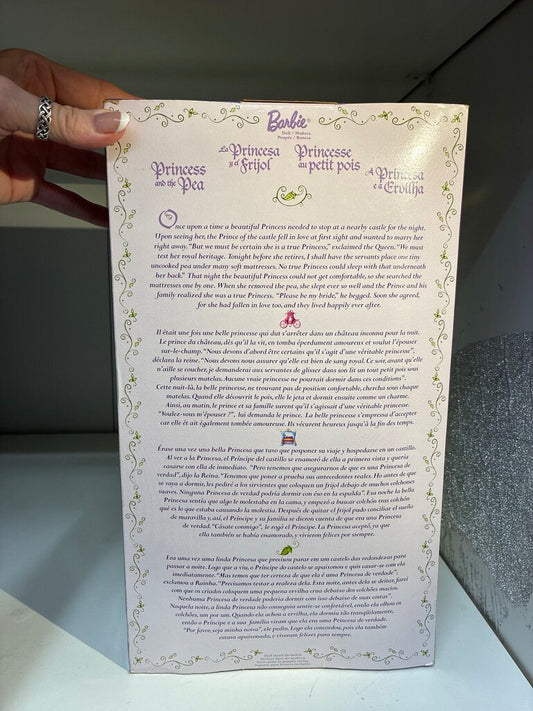 Barbie®
Doll / Muñeca
Poupée / Boneca
Princess
and the Pea
La Princesa
y el Frijol
Princesse
au petit pois
A Princesa
e a Ervilha
Once upon a time a beautiful Princess needed to stop at a nearby castle for the night.
Upon seeing her, the Prince of the castle fell in love at first sight and wanted to marry her
right away. "But we must be certain she is a true Princess," exclaimed the Queen. "We must
test her royal heritage. Tonight before she retires, I shall have the servants place one tiny
uncooked pea under many soft mattresses. No true Princess could sleep with that underneath
her back." That night the beautiful Princess could not get comfortable, so she searched the
mattresses one by one. When she removed the pea, she slept ever so well and the Prince and his
family realized she was a true Princess. "Please be my bride," he begged. Soon she agreed,
for she had fallen in love too, and they lived happily ever after.
Il était une fois une belle princesse qui dut s'arrêter dans un château inconnu pour la nuit.
Le prince du château, dès qu'il la vit, en tomba éperdument amoureux et voulut l'épouser
sur-le-champ. "Nous devons d'abord être certains qu'il s'agit d'une véritable princesse",
déclara la reine. "Nous devons nous assurer qu'elle est bien de sang royal. Ce soir, avant qu'elle
n'aille se coucher, je demanderai aux servants de glisser dans son lit un tout petit pois sous
plusieurs matelas. Aucune vraie princesse ne pourrait dormir dans ces conditions".
Cette nuit-là, la belle princesse, ne trouvant pas de position confortable, chercha sous chaque
matelas. Quand elle découvrit le pois, elle le jeta et dormit ensuite comme un charme.
Ainsi, au matin, le prince et sa famille surent qu'il s'agissait d'une véritable princesse.
"Voulez-vous m'épouser ?", lui demanda le prince. La belle princesse s'empressa d'accepter
car elle était également tombée amoureuse. Ils vécurent heureux jusqu'à la fin des temps.
Érase una vez una bella Princesa que tuvo que posponer su viaje y hospedarse en un castillo.
Al ver a la Princesa, el Príncipe del castillo se enamoró de ella a primera vista y quería
casarse con ella de inmediato. "Pero tenemos que asegurarnos de que es una Princesa de
verdad", dijo la Reina. "Tenemos que poner a prueba sus antecedentes reales. Ho antes de que
se vaya a dormir, les pediré a los sirvientes que coloquen un frijol debajo de muchos colchones
suaves. Ninguna Princesa de verdad podría dormir con éso en la espalda". Esa noche la bella
Princesa sentía que algo le molestaba en la cama, y empezó a buscar colchón tras colchón
qué es lo que estaba causando la molestia. Después de quitar el frijol pudo conciliar el sueño
de maravilla y, así, el Príncipe y su familia se dieron cuenta de que era una Princesa
de verdad. "Cásate conmigo", le rogó el Príncipe. La Princesa aceptó, ya que
ella también se había enamorado, y vivieron felices por siempre.
Era uma vez uma linda Princesa que precisou parar em um castelo das redondezas para
passar a noite. Logo que a viu, o Príncipe do castelo se apaixonou e quis casar-se com ela
imediatamente. "Mas temos que ter certeza de que ela é uma Princesa de verdade"
exclamou a Rainha. "Precisamos testar a realeza dela. Esta noite, antes dela se deitar, farei
com que os criados coloquem uma pequena ervilha crua debaixo dos colchões macios.
Nenhuma Princesa de verdade poderia dormir com isso debaixo de suas costas".
Naquela noite, a linda Princesa não conseguia sentir-se confortável, então ela olhou os
colchões, um por um. Quando ela achou a ervilha, ela dormiu tão tranqüilamente,
então o Príncipe e a sua família viram que ela era uma Princesa de verdade.
"Por favor, seja minha noiva", ele pediu. Logo ela concordou, pois ela também
estava apaixonada, e viveram felizes para sempre.
Doll stand included.